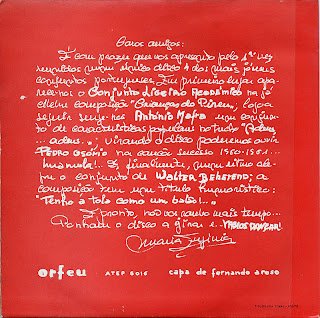 Caros amigos:
É com prazer que vos apresento pela 1ª vez
reunidos num único disco 4 dos mais jovens
conjuntos portugueses. Em primeiro lugar apa-
rece-nos o Conjunto Ligeiro Académico na já
célebre composição "Crianças do Pireu"; logo a
seguir surge-nos António Mafra num conjunto
de características populares notado "Adeus...
adeus..."; virando o disco poderemos ouvir
Pedro Osório na canção sucesso 1960-1961...
finalmente, num ritmo ale-
gre o conjunto de Walter Behrend; a
composição tem um título humorístico:
"Tenho a tola como um balão!..."
E pronto, não vos canso mais tempo...
Ponham o disco a girar e... vamos dançar!
orfeu ATEP 6016 capa de fernando aroso